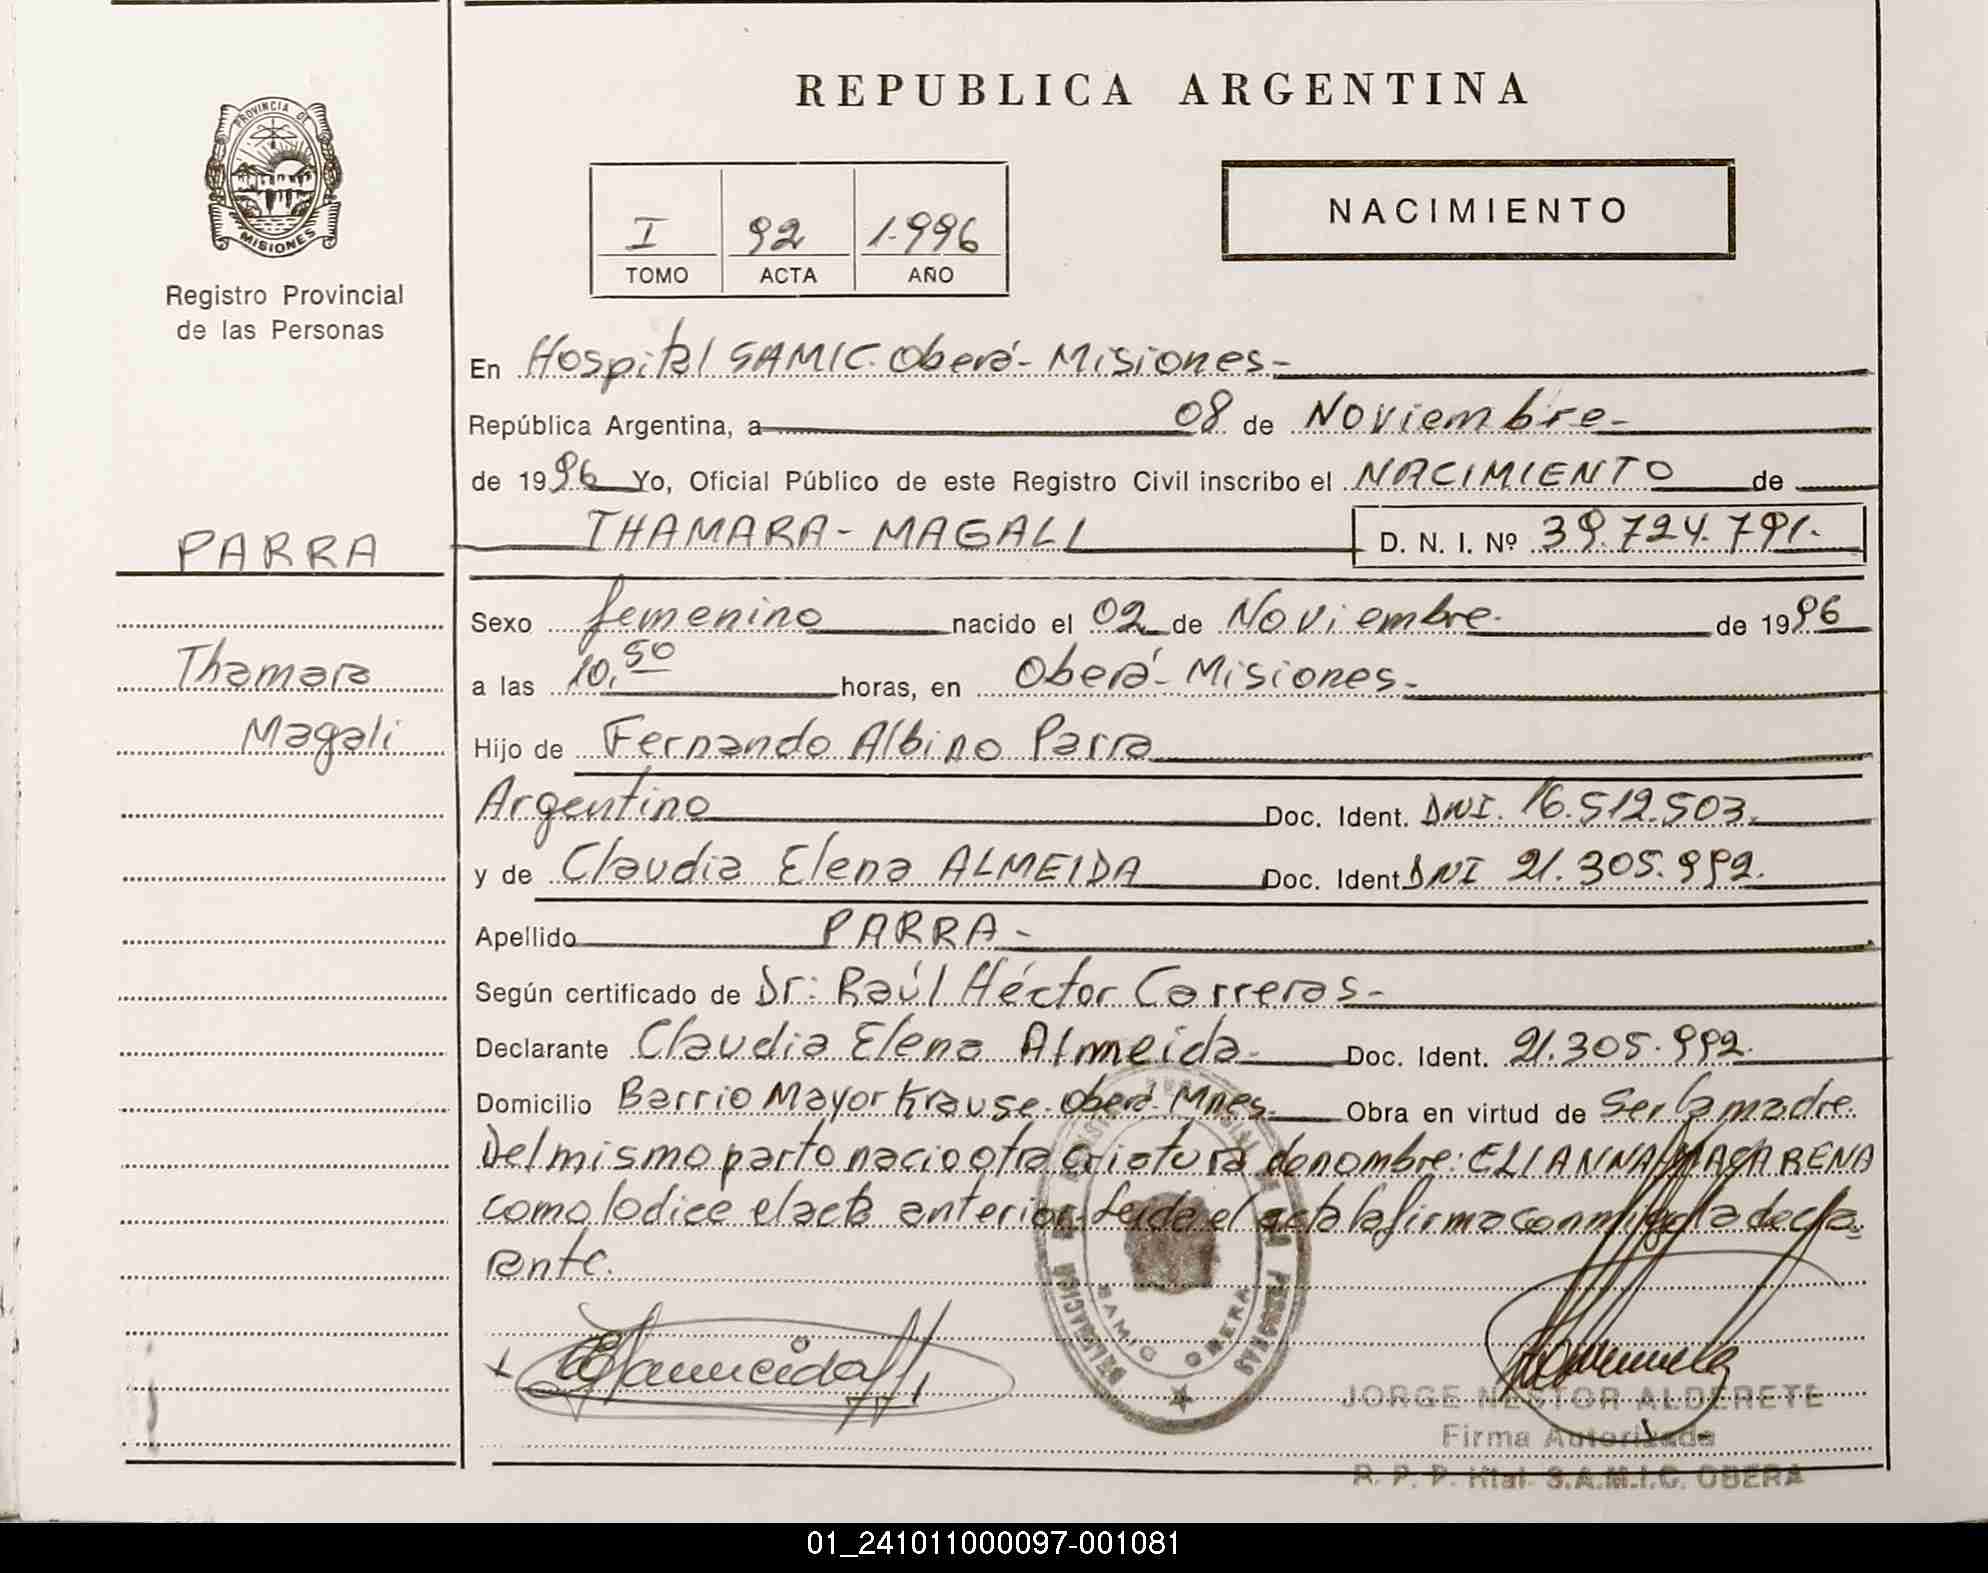 PROVINCIA DE
MISIONES
Registro Provincial
de las Personas
PARRA
Thamara
Magali
REPUBLICA ARGENTINA
I 92 1.996
TOMO ACTA AÑO
NACIMIENTO
En Hospital SAMIC. Oberá - Misiones -
República Argentina, a 08 de Noviembre -
de 1996 Yo, Oficial Público de este Registro Civil inscribo el NACIMIENTO de
THAMARA - MAGALI D. N. I. Nº 39.724.791.
Sexo femenino nacido el 02 de Noviembre. de 1996
a las 10,50 horas, en Oberá - Misiones -
Hijo de Fernando Albino Parra
Argentino Doc. Ident. DNI. 16.512.503.
y de Claudia Elena ALMEIDA Doc. Ident. DNI 21.305.992.
Apellido PARRA -
Según certificado de Dr: Raúl Héctor Carreras -
Declarante Claudia Elena Almeida - Doc. Ident. 21.305.992.
Domicilio Barrio Mayor Krause - Oberá - Mnes. Obra en virtud de Ser la madre.
Del mismo parto nacio otra criatura de nombre: ELIANNA MACARENA
como lo dice el acta anterior. Leida el acta la firma conmigo la decla
rante.
SAMIC OBERA
JORGE NESTOR ALDERETE
Firma Autorizada
R. P. P. Htal. S.A.M.I.C. OBERA
01_241011000097-001081